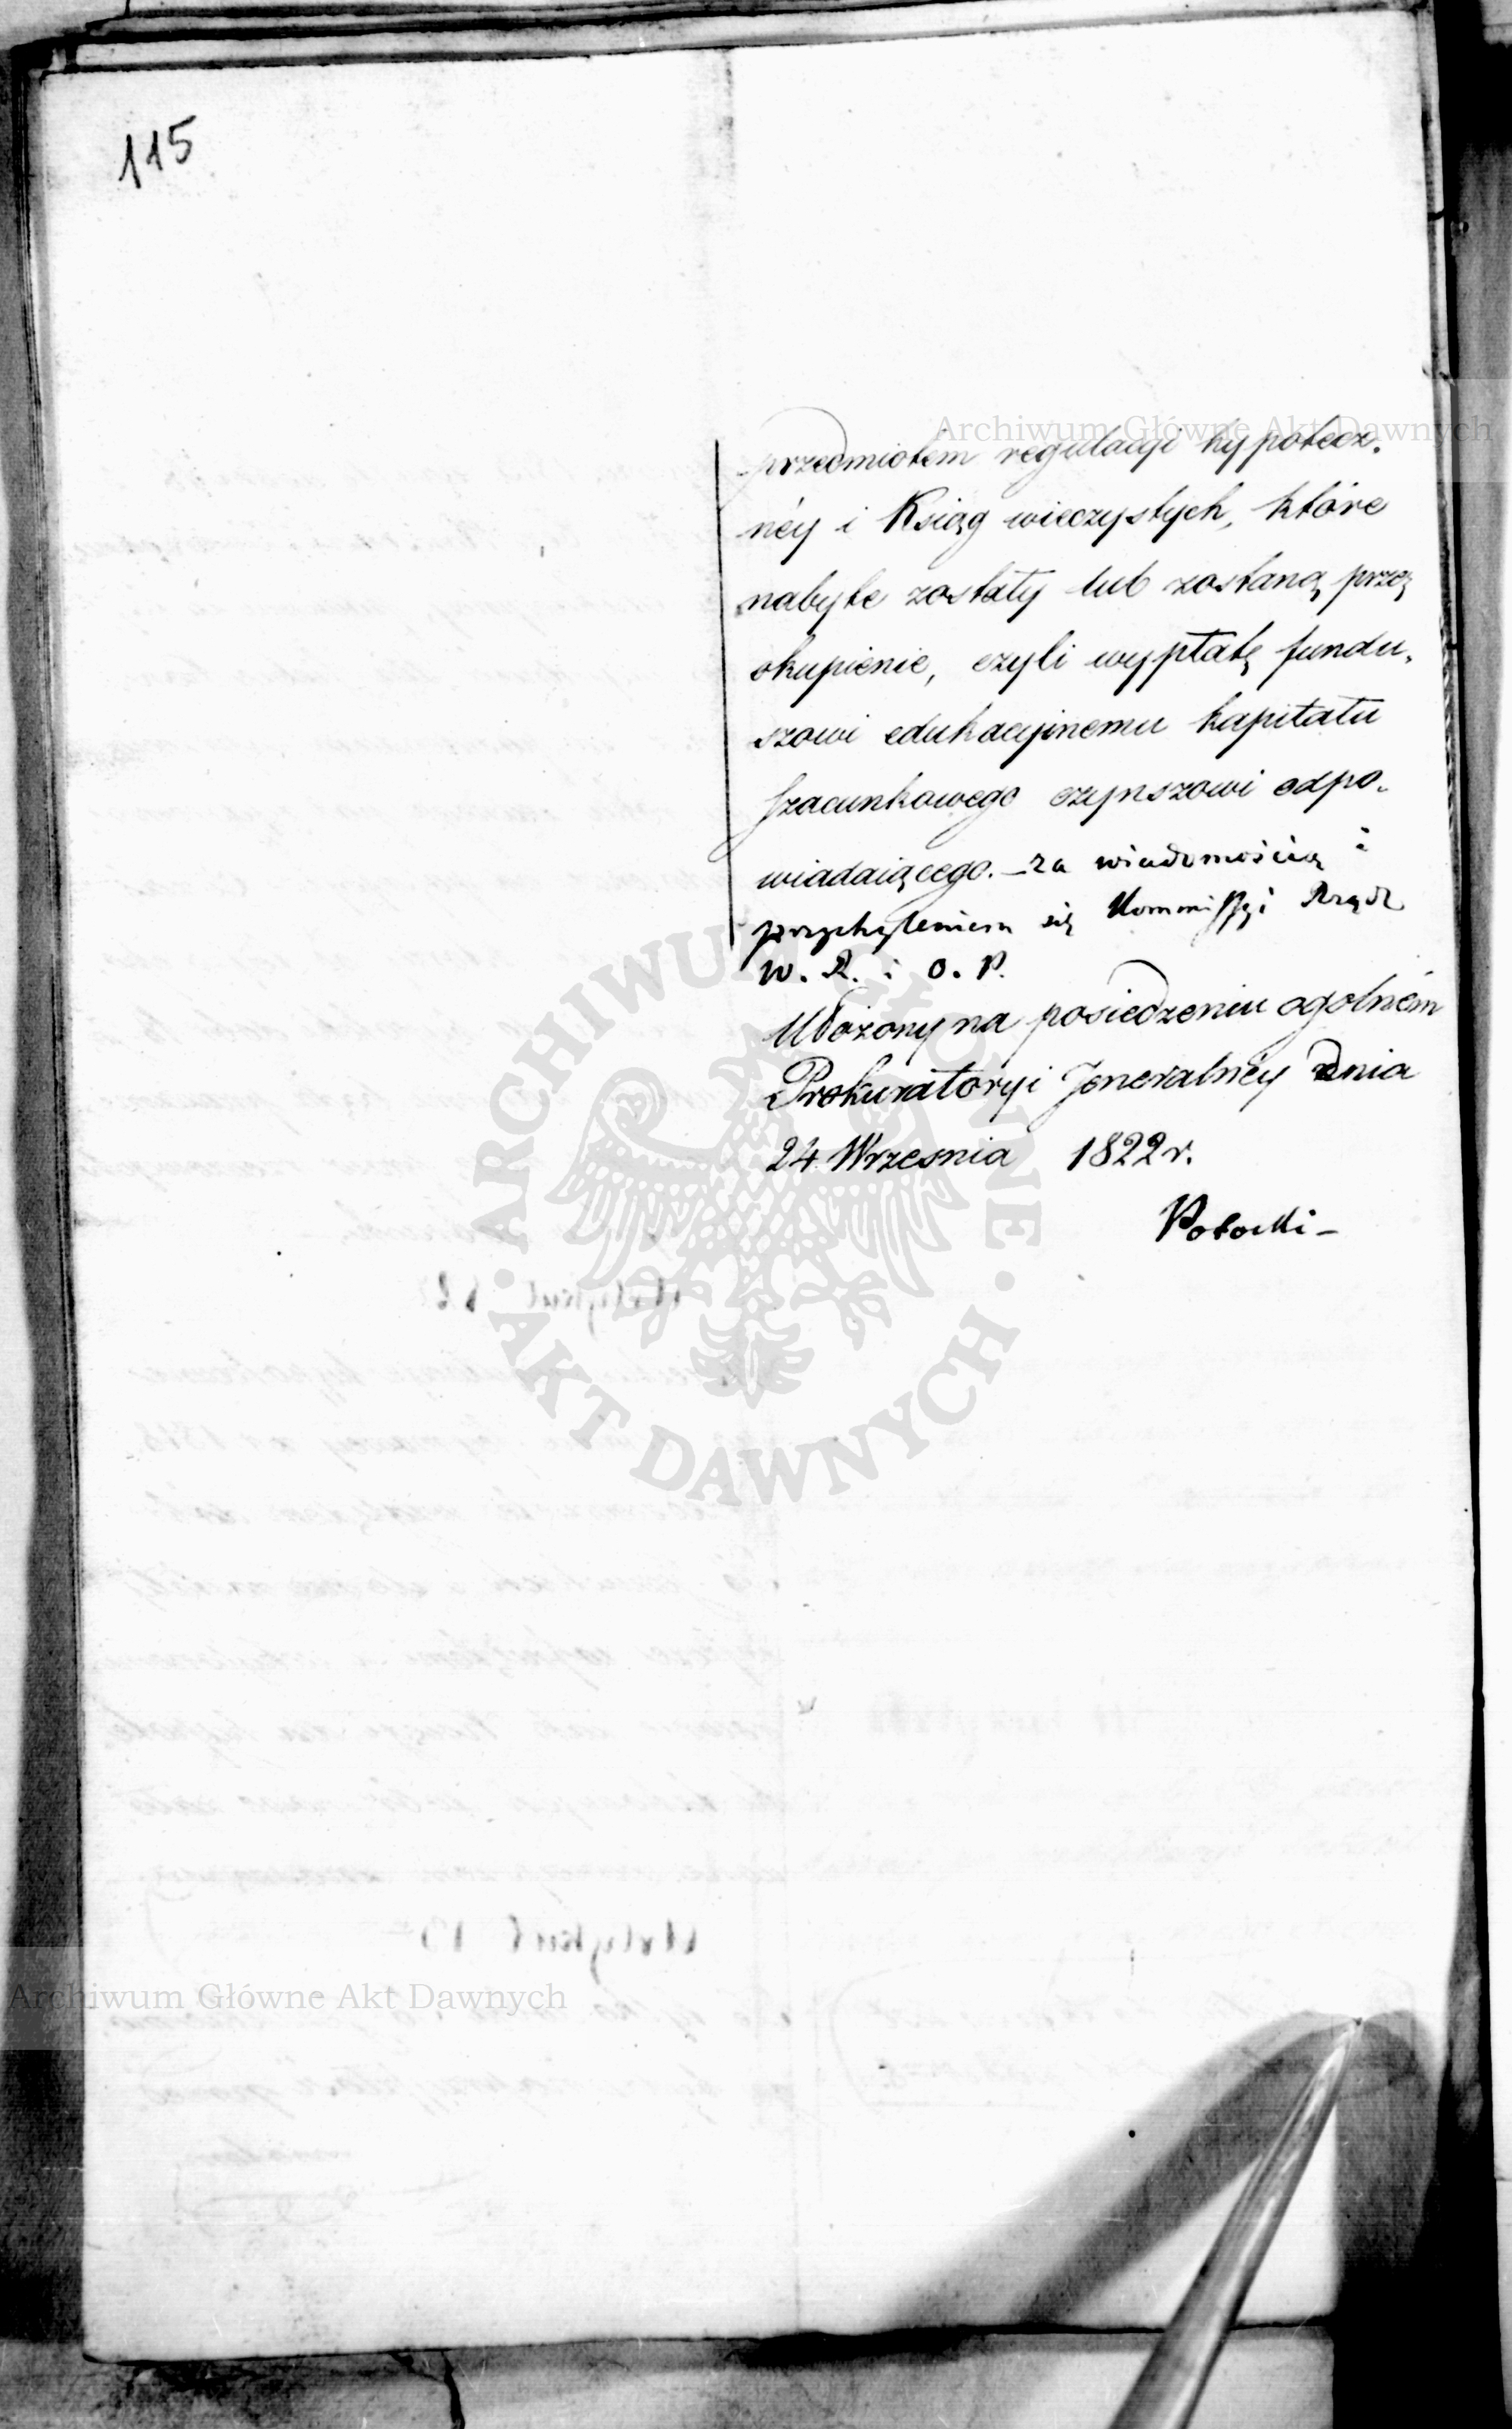 115
Archiwum Główne Akt Dawnych
przedmiotem regulacyi hypotecz.
néy i Ksiąg wieczystych, które
nabyte zostały lub zostaną przez
okupienie, czyli wypłatę fundu.
szowi edukacyinemu kapitału
szacunkowego czynszowi odpo.
wiadaiącego. – za wiadomością i
przychyleniem się Kommissyi Rząd
W. R. i O. P.
Ułożony na posiedzeniu ogolném
Prokuratoryi Jeneralnéy dnia
24 Wrzesnia 1822 r.
Potocki –
ARCHIWUM GŁÓWNE
AKT DAWNYCH
Archiwum Główne Akt Dawnych